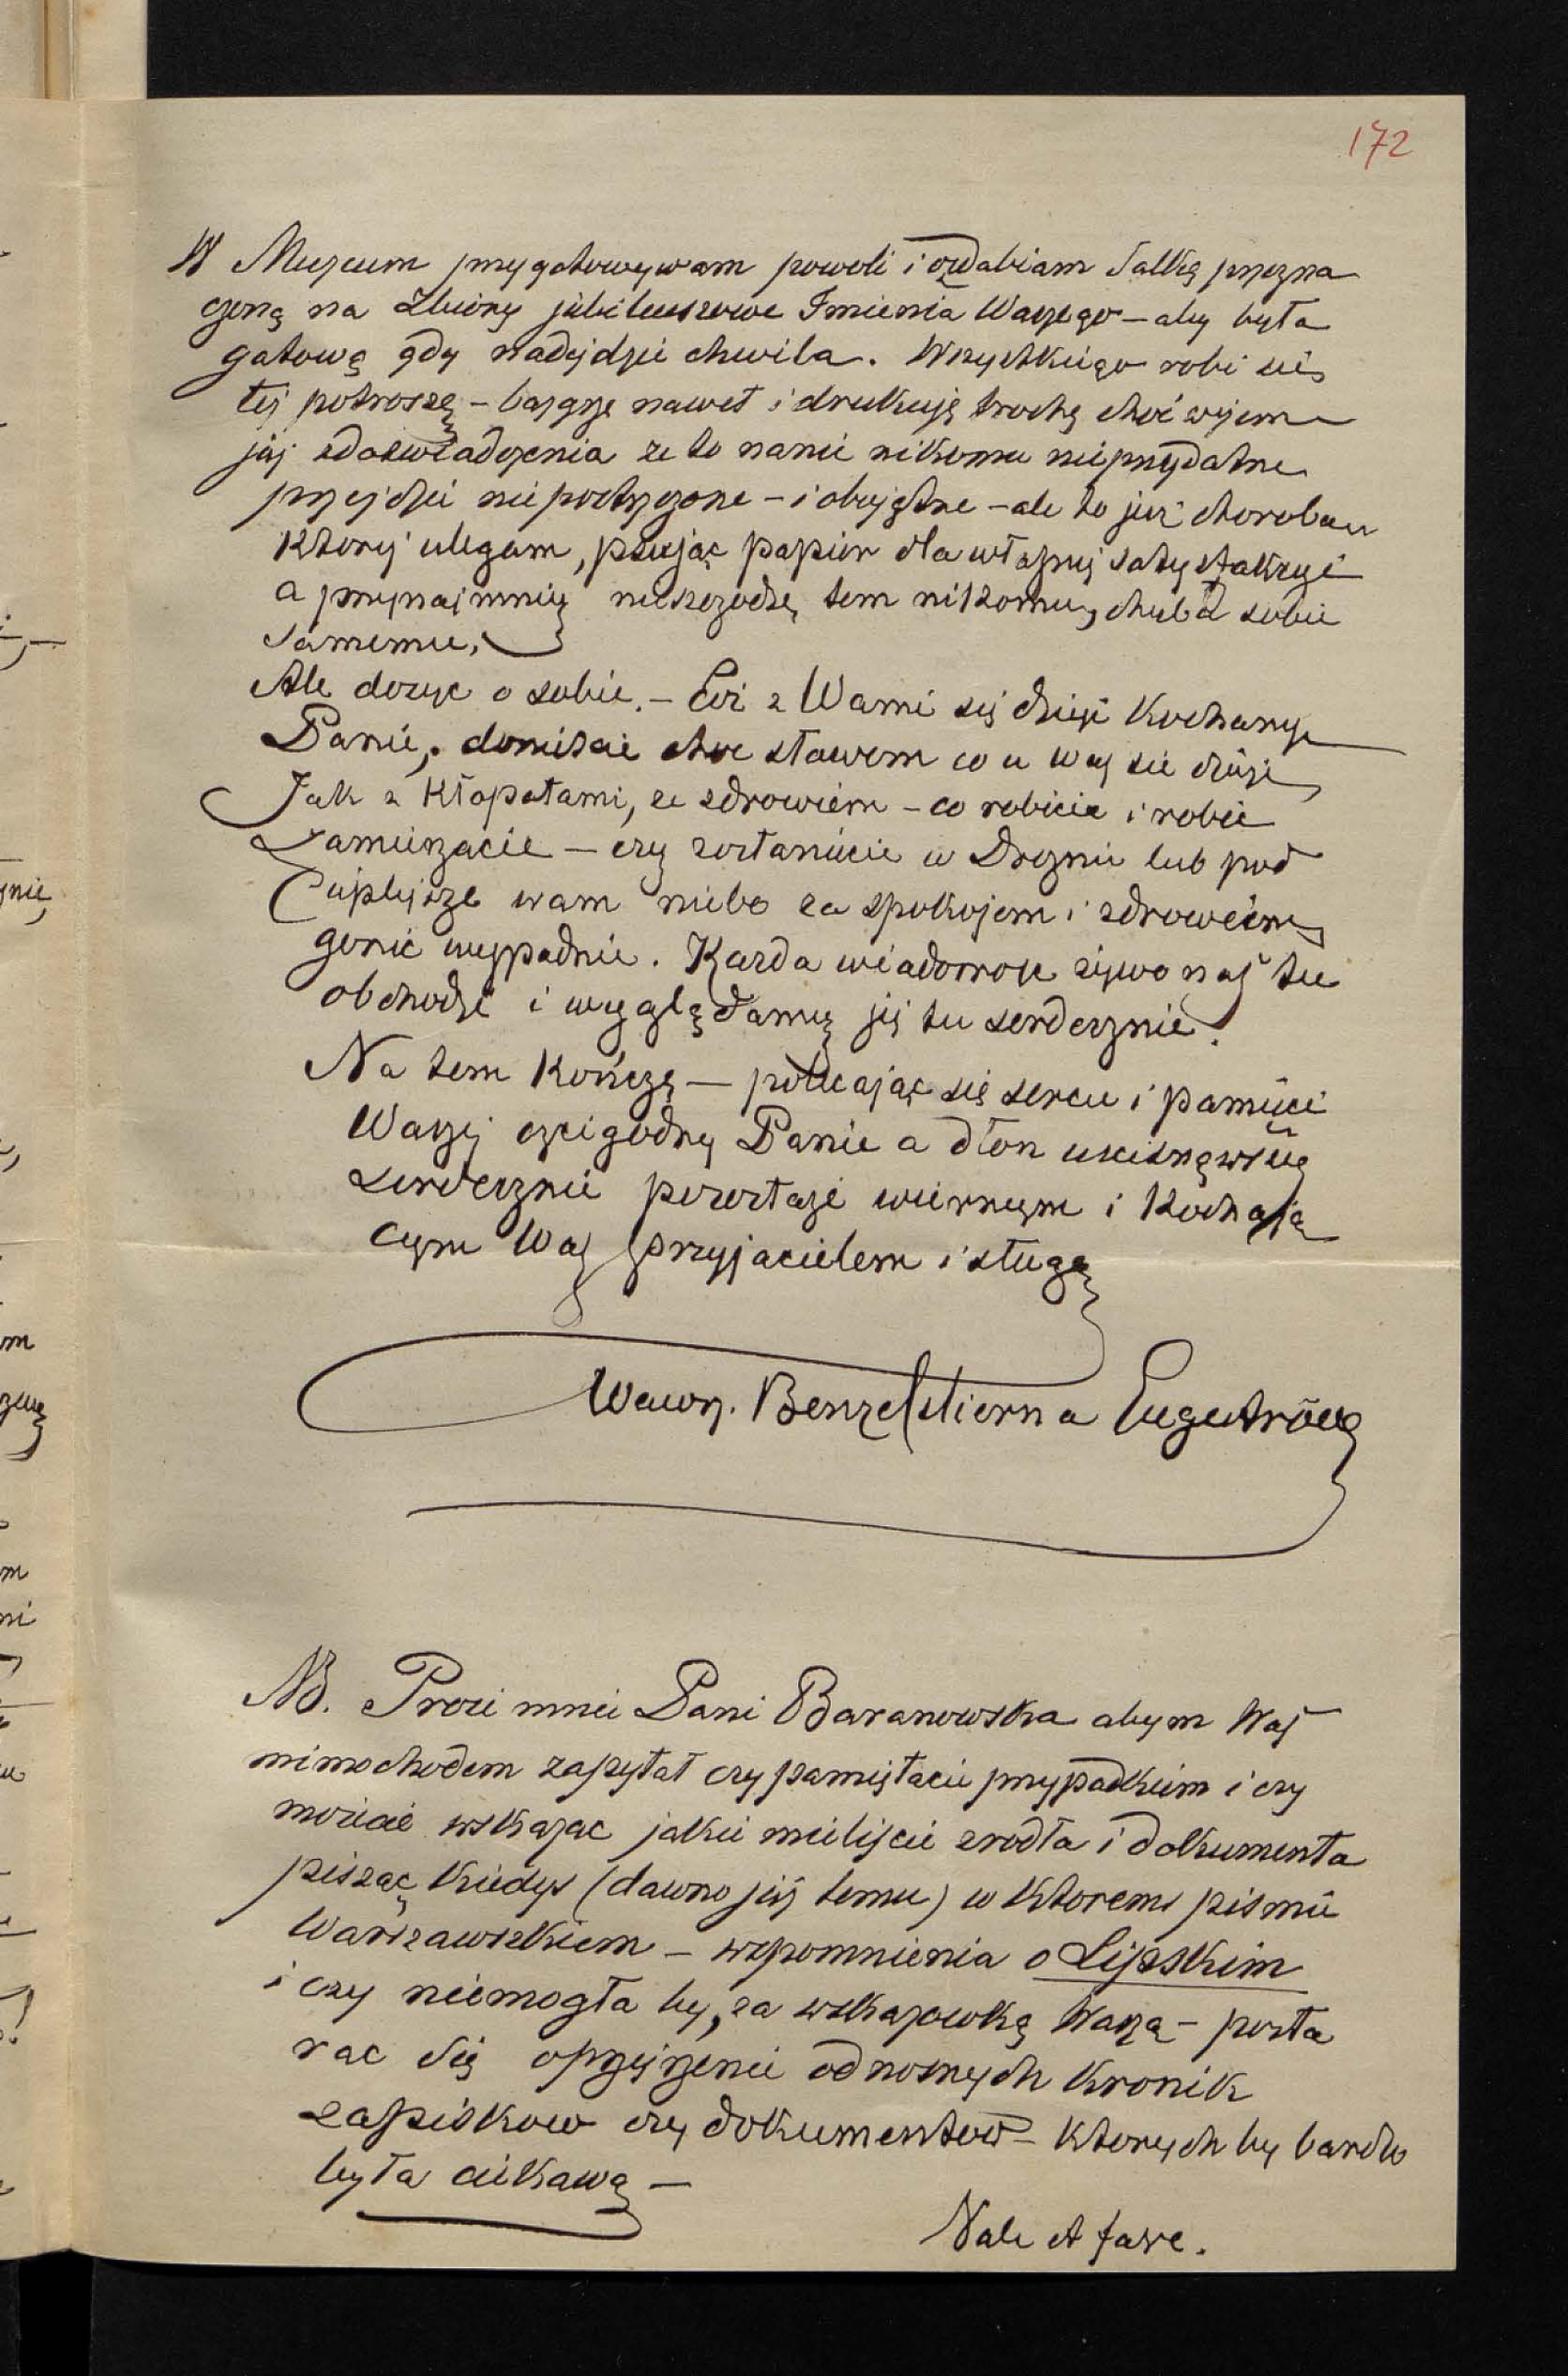 172
W Muzeum przygotowywam powoli i ozdabiam Salkę przezna
czoną na Zbiory jubileuszowe Imienia Waszego – aby była
gotową gdy nadejdzie chwila. Wszystkiego robi się
tej potroszę – bazgrzę nawet i drukuję trochę choć wiem
już z doswiadczenia ze to nanic nikomu nieprzydatne
przejdzie niepostrzeżone – i obojętne – ale to już choroba
Ktorej ulegam, psując papier dla własnej satysfakcyi
a przynajmniej nieszkodzę tem nikomu, chuba sobie
samemu.
Ale dosyc o sobie. – Coż z Wami się dzieje Kochany
Panie, doniescie choc słowem co u was się dzieje
Jak z Kłopotami, ze zdrowiem – co robicie i robić
Zamierzacie – czy zostaniecie w Dreznie lub pod
Cieplejsze wam niebo za spokojem i zdrowiem
gonić wypadnie. Kazda wiadomosc zywo nas tu
obchodzi i wyglądamy jej tu serdecznie.
Na tem Kończę – polecając się sercu i pamięci
Waszej czcigodny Panie a dłon uscisnąwszy
serdecznie pozostaję wiernym i Kochają
cym Was przyjacielem i sługą
Wawrz. Benzelstierna Engeströng
NB. Prosi mnie Pani Baranowska abym Was
mimochodem zapytał czy pamiętacie przypadkiem i czy
możicie wskazac jakie mieliscie zrodła i dokumenta
pisząc kiedys (dawno już temu) w Ktorems pismie
Warszawskiem – wspomnienia o Lipskim
i czy niemogła by, za wskazowką Waszą – posta
rac się oprzejrzenie odnosnych Kronik
zapiskow czy dokumentow – Ktorych by bardzo
była ciekawą –
Vale et fave.